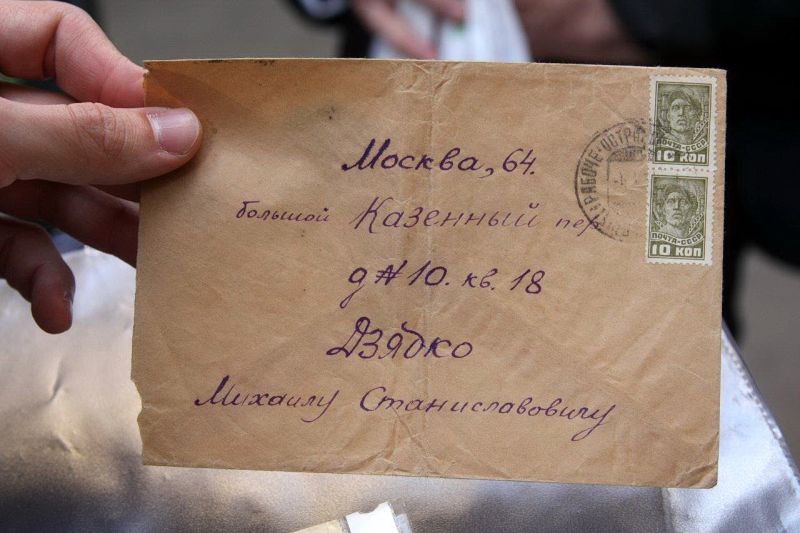 Москва, 64.
большой Казенный пер
д № 10. кв. 18
Дзядко
Михаилу Станиславовичу
ПОЧТА-СССР
10 КОП
ПОЧТА-СССР
10 КОП